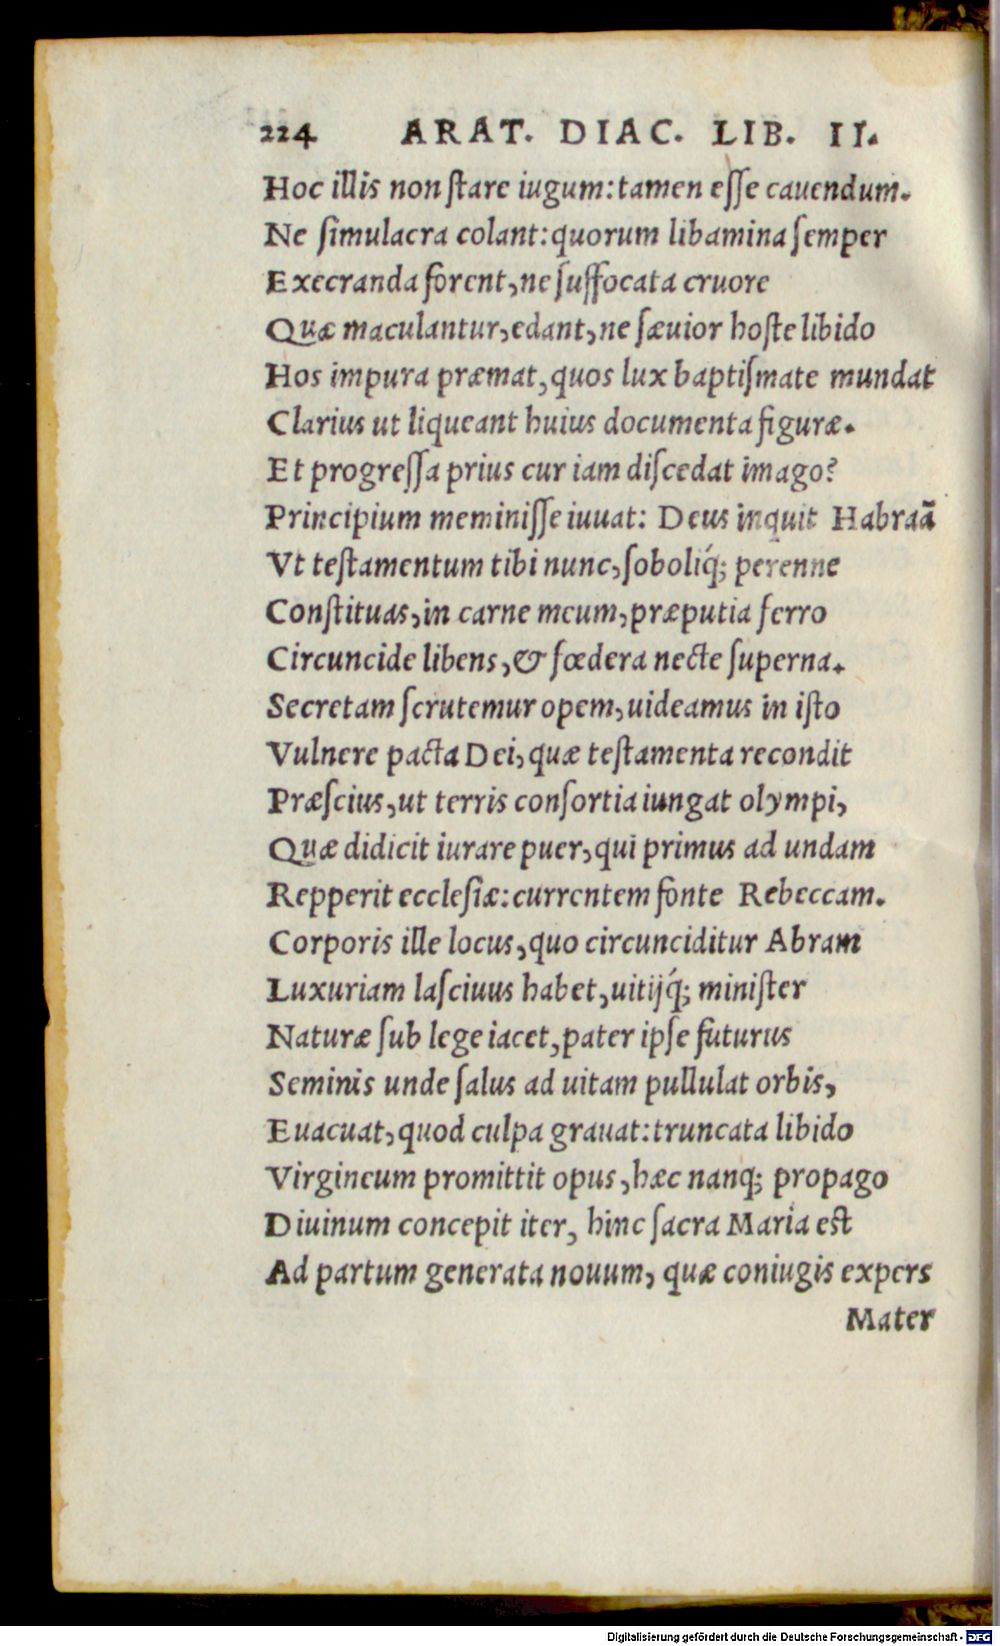 224 ARAT. DIAC. LIB. II.
Hoc illis non ſtare iugum: tamen eſſe cauendum.
Ne ſimulacra colant: quorum libamina ſemper
Execranda forent, ne ſuffocata cruore
Quæ maculantur, edant, ne ſæuior hoſte libido
Hos impura præmat, quos lux baptiſmate mundat
Clarius ut liqueant huius documenta figuræ.
Et progreſſa prius cur iam diſcedat imago?
Principium meminiſſe iuuat: Deus inquit Habraã
Vt teſtamentum tibi nunc, ſoboliq́; perenne
Conſtituas, in carne meum, præputia ferro
Circuncide libens, & fœdera necte ſuperna.
Secretam ſcrutemur opem, uideamus in iſto
Vulnere pacta Dei, quæ teſtamenta recondit
Præſcius, ut terris conſortia iungat olympi,
Quæ didicit iurare puer, qui primus ad undam
Repperit eccleſiæ: currentem fonte Rebeccam.
Corporis ille locus, quo circunciditur Abram
Luxuriam laſciuus habet, uitijq́; miniſter
Naturæ ſub lege iacet, pater ipſe futurus
Seminis unde ſalus ad uitam pullulat orbis,
Euacuat, quod culpa grauat: truncata libido
Virgineum promittit opus, hæc nanq; propago
Diuinum concepit iter, hinc ſacra Maria eſt
Ad partum generata nouum, quæ coniugis expers
Mater
Digitalisierung gefördert durch die Deutsche Forschungsgemeinschaft - DFG